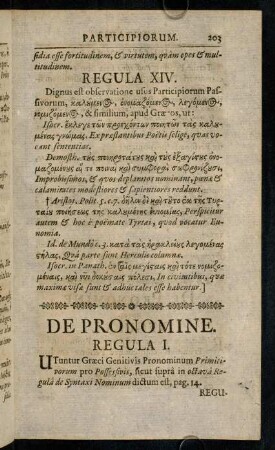 PARTICIPIORUM. 203
sidia esse fortitudinem, & virtutem, quàm opes & mul-
titudinem.
REGULA XIV.
Dignus est observatione usus Participiorum Pas-
sivorum, καλυμενος, ὀνομαζόμενος, λεγόμενος,
νομιζόμενος, & similium, apud Græcos, ut:
Isocr. τῶν ποιητῶν τὰς καλυ-
μένας γνώμας. Expræstantibus Poëtis selige, quas vo-
cant sententias.
Demosth. τὺς πονηροτάτυς καὶ τὺς ἐξαγίςυς ὀνο-
μαζομένυς
Improbissimos, & quos diplantos nominant, pœnæ &
calamitates modestiores & sapientiores reddunt.
† Aristot. Polit. 5. c. 7. δῆλον καὶ τῦτο ἐκ τῆς Τυρ-
ταίυ ποιήσεως τῆς καλυμένης ἐυνομίας, Perspicitur
autem & hoc è poëmate Tyrtæi, quod vocatur Eu-
nomia.
Id. de Mundo c. 3. κατὰ τὰς ἡρακλείυς λεγομένας
ςήλας. Quâ parte sunt Herculis columnæ.
Isocr. in Panath. ἐν ταῖς μεγίςαις καὶ τότε νομιζο-
μέναις, καὶ νῦν πόλεσι, In civitatibus, quæ
maximæ visæ sunt & adhuc tales esse habentur. ]
DE PRONOMINE.
REGULA I.
UTuntur Græci Genitivis Pronominum Primiti-
vorum pro Possessivis, sicut suprà in octavâ Re-
gulâ de Syntaxi Nominum dictum est, pag. 14.
REGU-